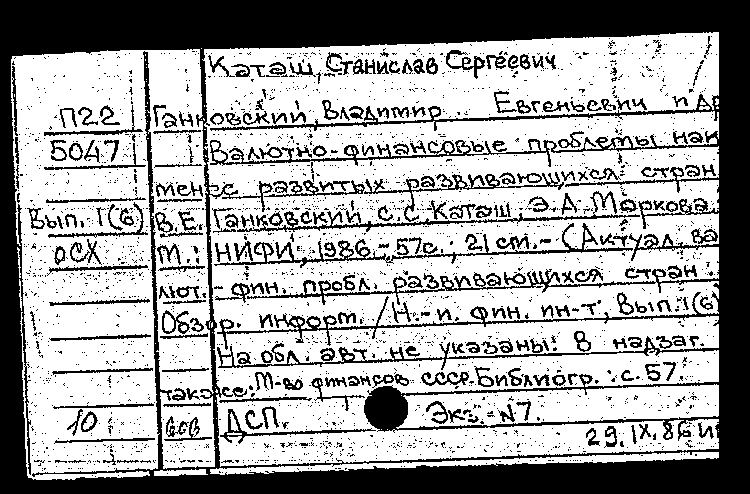 Каташ, Станислав Сергеевич
П22 Ганковский, Владимир Евгеньевич и др
5047 Валютно-финансовые проблемы наи
менее развитых развивающихся стран
Вып. 1(6) В.Е. Ганковский, С.С. Каташ, Э.А. Маркова.
ОСХ М.: НИФИ, 1986.- 57с.; 21 см.- (Актуал. ва
лют.-фин. пробл. развивающихся стран:
Обзор. информ. / Н.-и. фин. ин-т; Вып.1(6)
На обл. авт. не указаны. В надзаг.
также: М-во финансов СССР. Библиогр.: с. 57.
10 ДСП. Экз. N7.
29.IX.86